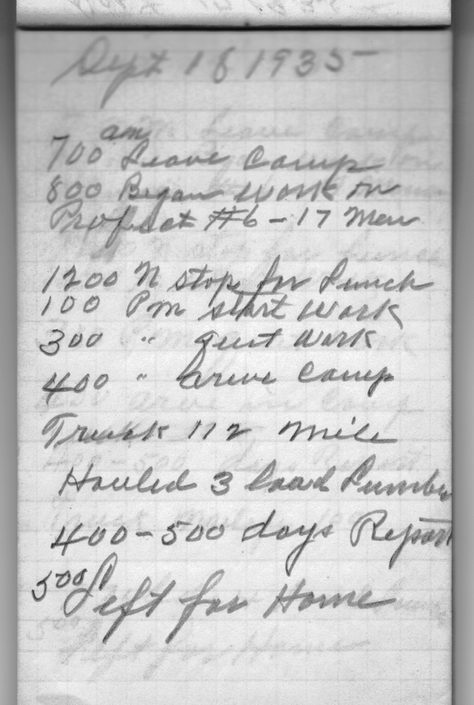 Sept 18 1935
am
700 Leave Camp
800 Began Work on
Project #6 - 17 Men
1200 N stop for Lunch
100 Pm start Work
300 " quit Work
400 " arive Camp
Truck 112 Mile
Hauled 3 load Lumber
400-500 days Report
500 Left for Home